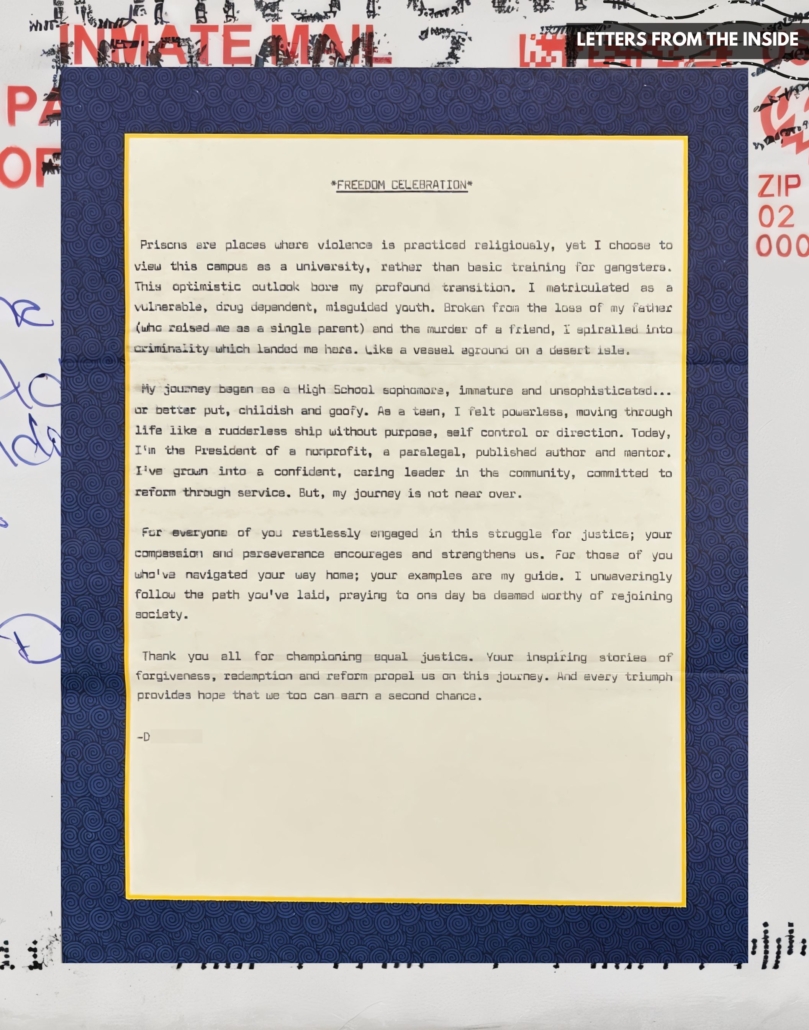 INMATE MAIL
LETTERS FROM THE INSIDE
PA
OF
ZIP
02
000
*FREEDOM CELEBRATION*
Prisons are places where violence is practiced religiously, yet I choose to
view this campus as a university, rather than basic training for gangsters.
This optimistic outlook bore my profound transition. I matriculated as a
vulnerable, drug dependent, misguided youth. Broken from the loss of my father
(who raised me as a single parent) and the murder of a friend, I spiralled into
criminality which landed me here. Like a vessel aground on a desert isle.
My journey began as a High School sophomore, immature and unsophisticated...
or better put, childish and goofy. As a teen, I felt powerless, moving through
life like a rudderless ship without purpose, self control or direction. Today,
I'm the President of a nonprofit, a paralegal, published author and mentor.
I've grown into a confident, caring leader in the community, committed to
reform through service. But, my journey is not near over.
For everyone of you restlessly engaged in this struggle for justice; your
compassion and perseverance encourages and strengthens us. For those of you
who've navigated your way home; your examples are my guide. I unwaveringly
follow the path you've laid, praying to one day be deemed worthy of rejoining
society.
Thank you all for championing equal justice. Your inspiring stories of
forgiveness, redemption and reform propel us on this journey. And every triumph
provides hope that we too can earn a second chance.
-D